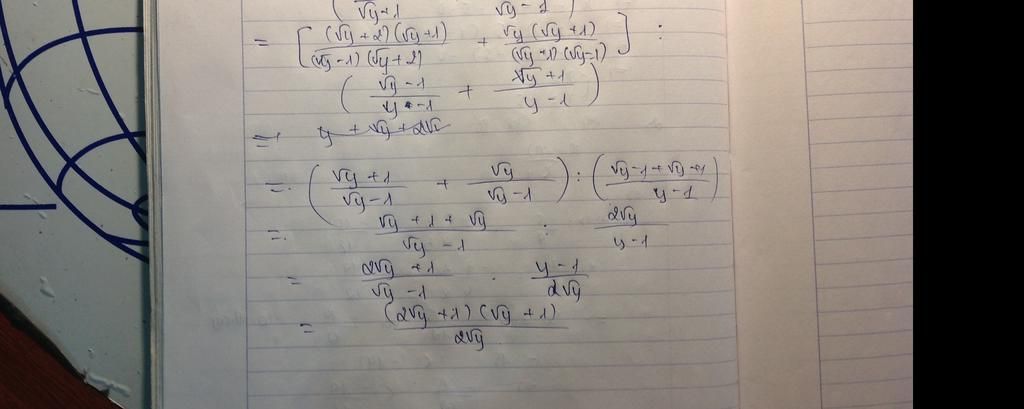 ( √y+1 √y-1 )
= [ (√y+2)(√y+1) / (√y-1)(√y+2) + √y(√y+1) / (√y+1)(√y-1) ] :
( √y-1 / y-1 + √y+1 / y-1 )
= y+√y+2√y
= ( √y+1 / √y-1 + √y / √y-1 ) : ( √y-1+√y+1 / y-1 )
= √y+1+√y / √y-1 : 2√y / y-1
= 2√y+1 / √y-1 . y-1 / 2√y
= (2√y+1)(√y+1) / 2√y